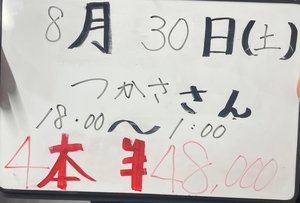 8月30日(土)
つかささん
18:00〜1:00
4本半48,000